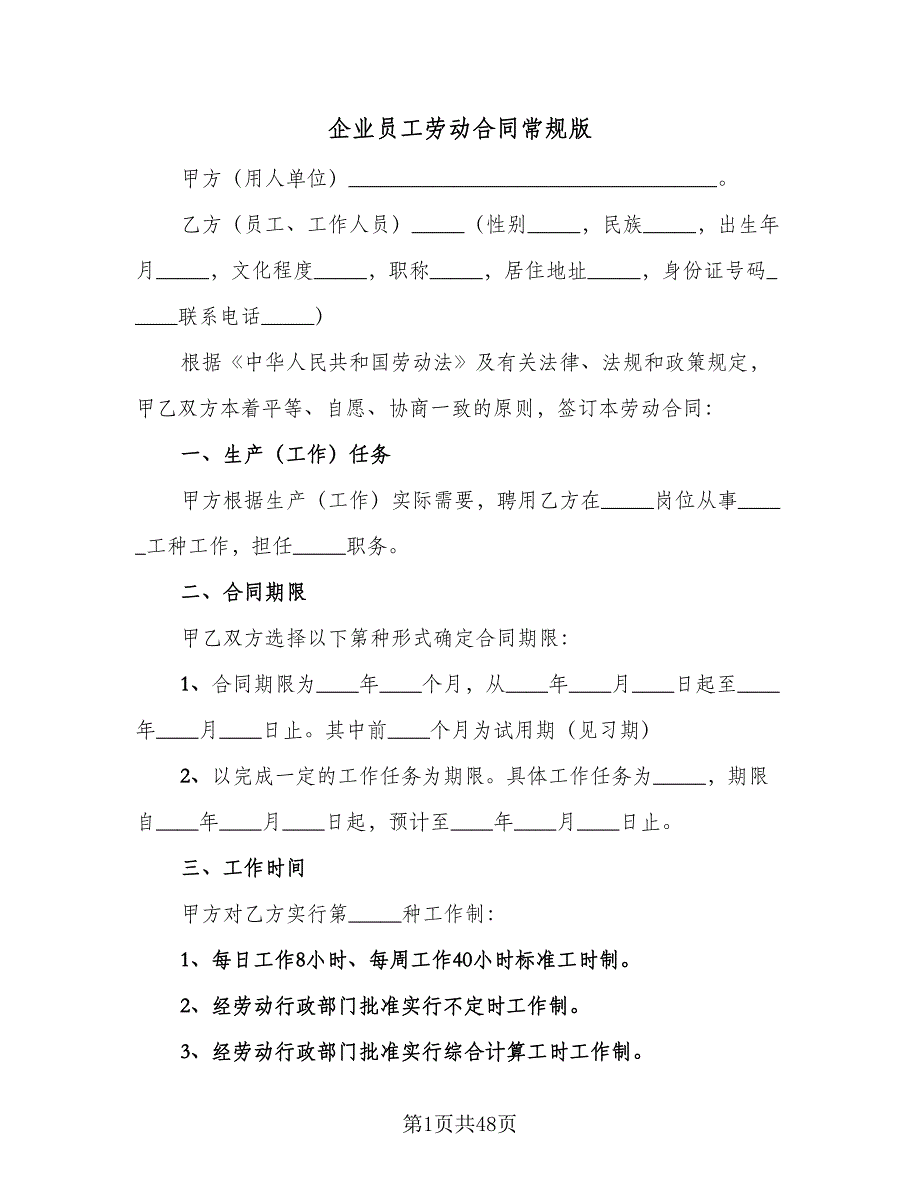 企业员工劳动合同常规版
甲方（用人单位）___________________________________。
乙方（员工、工作人员）_____（性别_____，民族_____，出生年
月_____，文化程度_____，职称_____，居住地址_____，身份证号码_
____联系电话_____）
根据《中华人民共和国劳动法》及有关法律、法规和政策规定，
甲乙双方本着平等、自愿、协商一致的原则，签订本劳动合同：
一、生产（工作）任务
甲方根据生产（工作）实际需要，聘用乙方在_____岗位从事____
_工种工作，担任_____职务。
二、合同期限
甲乙双方选择以下第种形式确定合同期限：
1、合同期限为____年____个月，从____年____月____日起至____
年____月____日止。其中前____个月为试用期（见习期）
2、以完成一定的工作任务为期限。具体工作任务为_____，期限
自____年____月____日起，预计至____年____月____日止。
三、工作时间
甲方对乙方实行第_____种工作制：
1、每日工作8小时、每周工作40小时标准工时制。
2、经劳动行政部门批准实行不定时工作制。
3、经劳动行政部门批准实行综合计算工时工作制。
第1页共48页